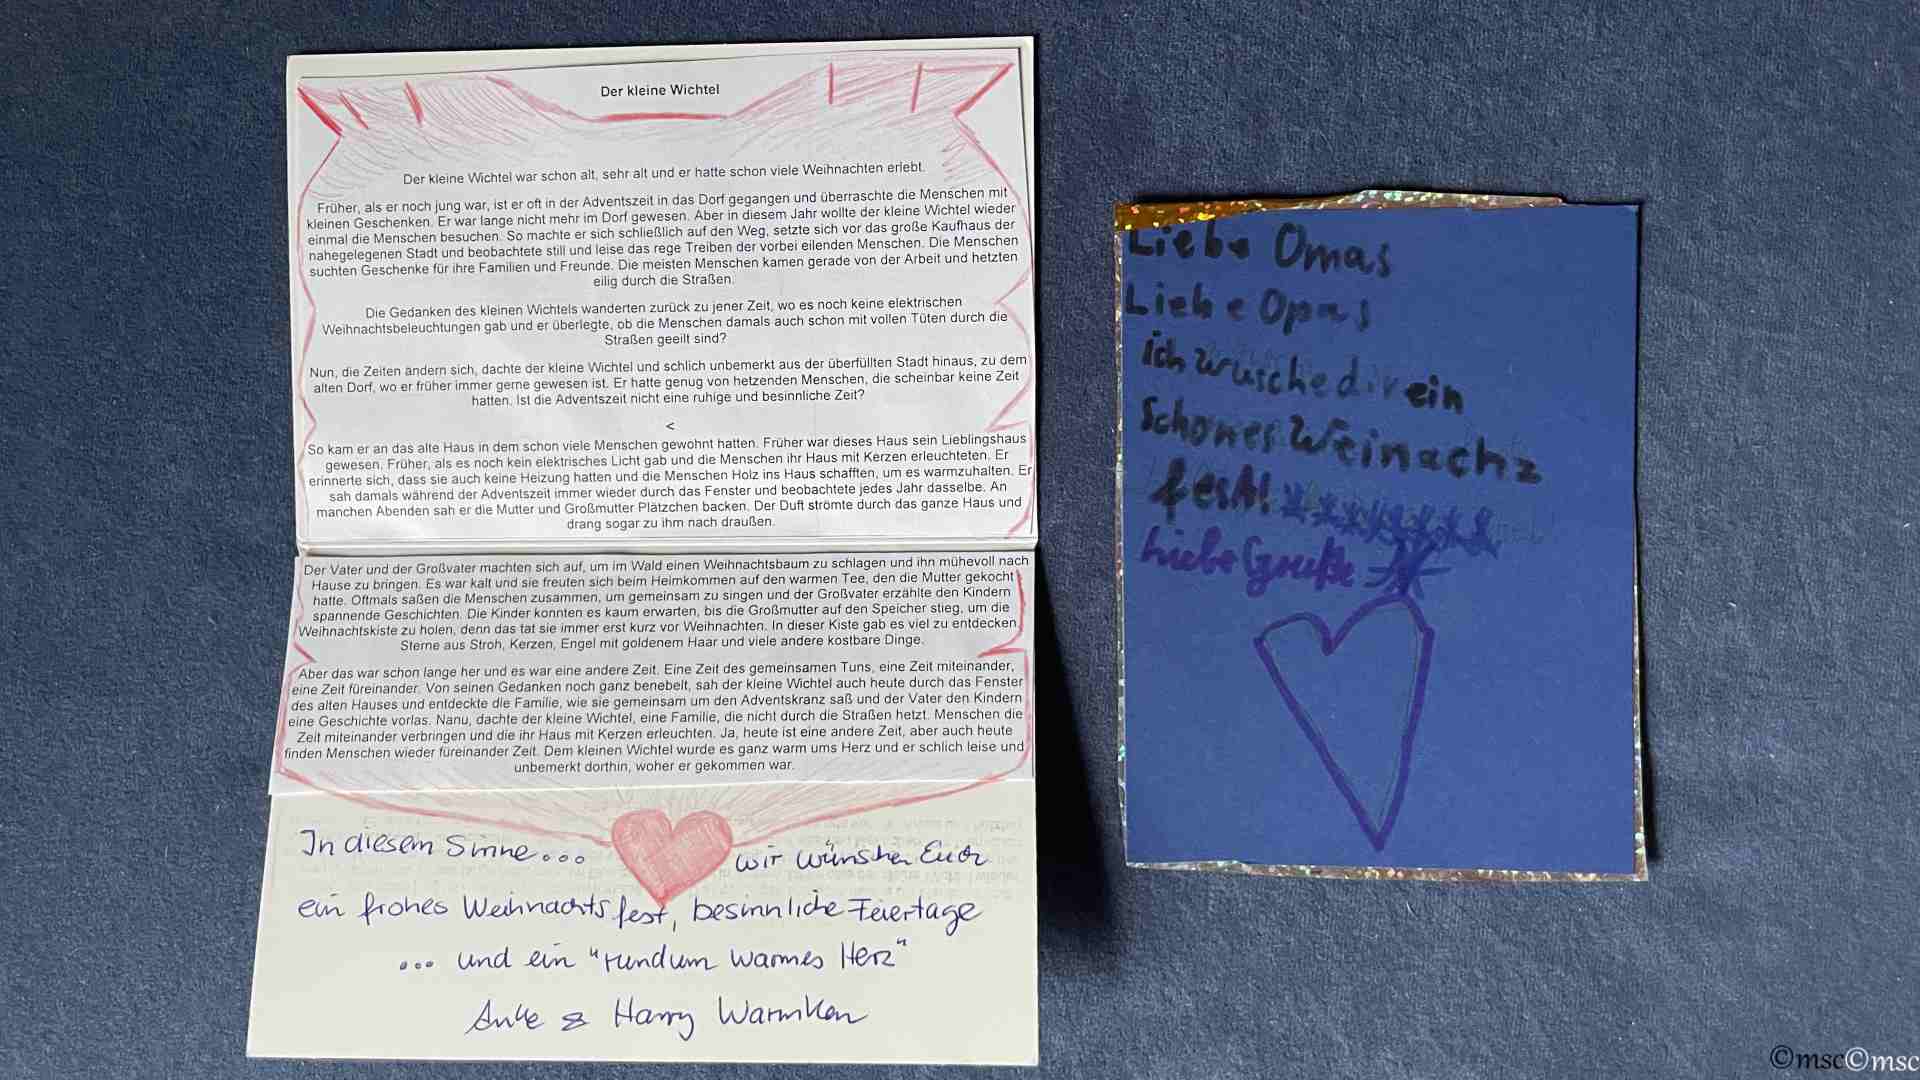 Der kleine Wichtel
Der kleine Wichtel war schon alt, sehr alt und er hatte schon viele Weihnachten erlebt.
Früher, als er noch jung war, ist er oft in der Adventszeit in das Dorf gegangen und überraschte die Menschen mit
kleinen Geschenken. Er war lange nicht mehr im Dorf gewesen. Aber in diesem Jahr wollte der kleine Wichtel wieder
einmal die Menschen besuchen. So machte er sich schließlich auf den Weg, setzte sich vor das große Kaufhaus der
nahegelegenen Stadt und beobachtete still und leise das rege Treiben der vorbei eilenden Menschen. Die Menschen
suchten Geschenke für ihre Familien und Freunde. Die meisten Menschen kamen gerade von der Arbeit und hetzten
eilig durch die Straßen.
Die Gedanken des kleinen Wichtels wanderten zurück zu jener Zeit, wo es noch keine elektrischen
Weihnachtsbeleuchtungen gab und er überlegte, ob die Menschen damals auch schon mit vollen Tüten durch die
Straßen geeilt sind?
Nun, die Zeiten ändern sich, dachte der kleine Wichtel und schlich unbemerkt aus der überfüllten Stadt hinaus, zu dem
alten Dorf, wo er früher immer gerne gewesen ist. Er hatte genug von hetzenden Menschen, die scheinbar keine Zeit
hatten. Ist die Adventszeit nicht eine ruhige und besinnliche Zeit?
<
So kam er an das alte Haus in dem schon viele Menschen gewohnt hatten. Früher war dieses Haus sein Lieblingshaus
gewesen. Früher, als es noch kein elektrisches Licht gab und die Menschen ihr Haus mit Kerzen erleuchteten. Er
erinnerte sich, dass sie auch keine Heizung hatten und die Menschen Holz ins Haus schafften, um es warmzuhalten. Er
sah damals während der Adventszeit immer wieder durch das Fenster und beobachtete jedes Jahr dasselbe. An
manchen Abenden sah er die Mutter und Großmutter Plätzchen backen. Der Duft strömte durch das ganze Haus und
drang sogar zu ihm nach draußen.
Der Vater und der Großvater machten sich auf, um im Wald einen Weihnachtsbaum zu schlagen und ihn mühevoll nach
Hause zu bringen. Es war kalt und sie freuten sich beim Heimkommen auf den warmen Tee, den die Mutter gekocht
hatte. Oftmals saßen die Menschen zusammen, um gemeinsam zu singen und der Großvater erzählte den Kindern
spannende Geschichten. Die Kinder konnten es kaum erwarten, bis die Großmutter auf den Speicher stieg, um die
Weihnachtskiste zu holen, denn das tat sie immer erst kurz vor Weihnachten. In dieser Kiste gab es viel zu entdecken.
Sterne aus Stroh, Kerzen, Engel mit goldenem Haar und viele andere kostbare Dinge.
Aber das war schon lange her und es war eine andere Zeit. Eine Zeit des gemeinsamen Tuns, eine Zeit miteinander,
eine Zeit füreinander. Von seinen Gedanken noch ganz benebelt, sah der kleine Wichtel auch heute durch das Fenster
des alten Hauses und entdeckte die Familie, wie sie gemeinsam um den Adventskranz saß und der Vater den Kindern
eine Geschichte vorlas. Nanu, dachte der kleine Wichtel, eine Familie, die nicht durch die Straßen hetzt. Menschen die
Zeit miteinander verbringen und die ihr Haus mit Kerzen erleuchten. Ja, heute ist eine andere Zeit, aber auch heute
finden Menschen wieder füreinander Zeit. Dem kleinen Wichtel wurde es ganz warm ums Herz und er schlich leise und
unbemerkt dorthin, woher er gekommen war.
In diesem Sinne... wir wünschen Euch
ein frohes Weihnachtsfest, besinnliche Feiertage
... und ein "rundum warmes Herz"
Anke & Harry Warmken
Liebe Omas
Liebe Opas
ich wusche dir ein
Schones Weinachz
fest!
Liebe Gruße
©msc©msc